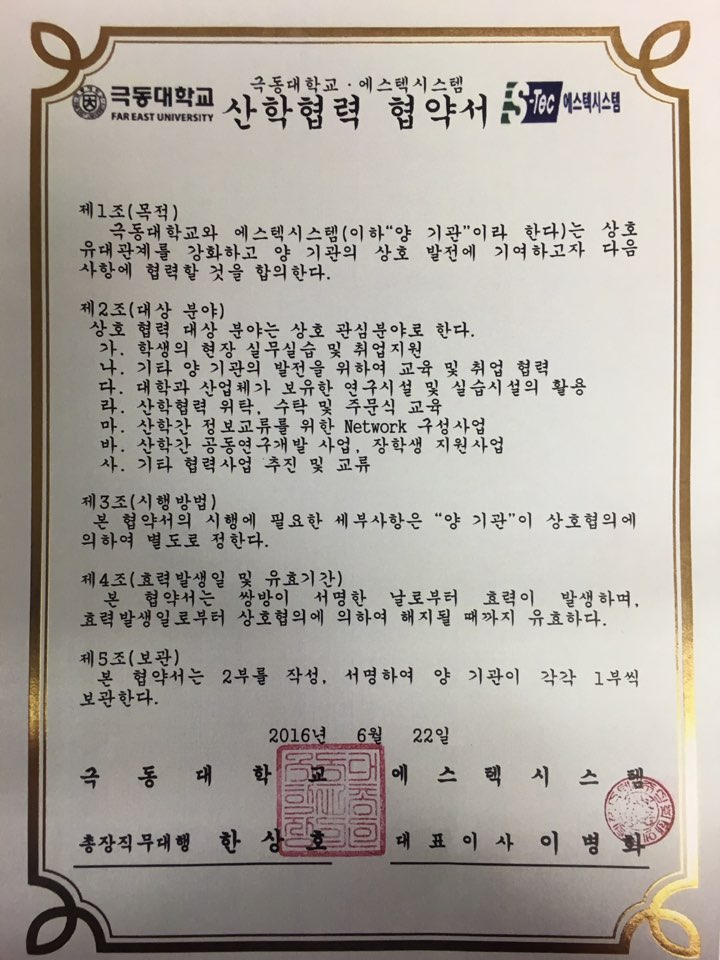 극동대학교
FAR EAST UNIVERSITY
극동대학교 · 에스텍시스템
산학협력 협약서
S-Tec 에스텍시스템
제1조(목적)
극동대학교와 에스텍시스템(이하“양 기관”이라 한다)는 상호
유대관계를 강화하고 양 기관의 상호 발전에 기여하고자 다음
사항에 협력할 것을 합의한다.
제2조(대상 분야)
상호 협력 대상 분야는 상호 관심분야로 한다.
가. 학생의 현장 실무실습 및 취업지원
나. 기타 양 기관의 발전을 위하여 교육 및 취업 협력
다. 대학과 산업체가 보유한 연구시설 및 실습시설의 활용
라. 산학협력 위탁, 수탁 및 주문식 교육
마. 산학간 정보교류를 위한 Network 구성사업
바. 산학간 공동연구개발 사업, 장학생 지원사업
사. 기타 협력사업 추진 및 교류
제3조(시행방법)
본 협약서의 시행에 필요한 세부사항은 “양 기관”이 상호협의에
의하여 별도로 정한다.
제4조(효력발생일 및 유효기간)
본 협약서는 쌍방이 서명한 날로부터 효력이 발생하며,
효력발생일로부터 상호협의에 의하여 해지될 때까지 유효하다.
제5조(보관)
본 협약서는 2부를 작성, 서명하여 양 기관이 각각 1부씩
보관한다.
2016년 6월 22일
극 동 대 학 교 에 스 텍 시 스 템
총장직무대행 한 상 호 대 표 이 사 이 병 화